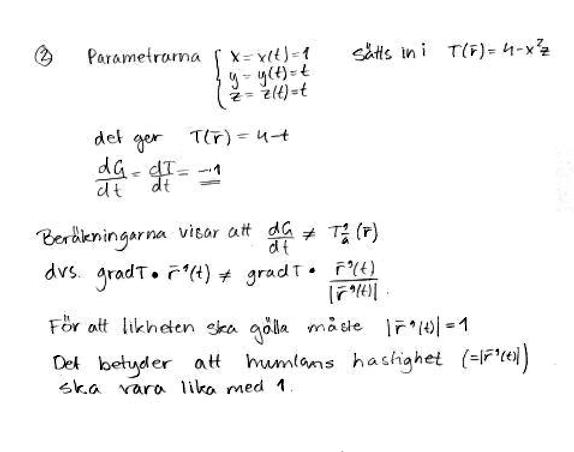 ② Parametrarna { x = x(t) = 1 sätts in i T(r̄) = 4-x²z
y = y(t) = t
z = z(t) = t
det ger T(r̄) = 4-t
dG/dt = dT/dt = -1
Beräkningarna visar att dG/dt ≠ T'ₐ(r̄)
dvs. gradT • r̄'(t) ≠ gradT • r̄'(t)/|r̄'(t)|.
För att likheten ska gälla måste |r̄'(t)| = 1
Det betyder att humlans hastighet (=|r̄'(t)|)
ska vara lika med 1.